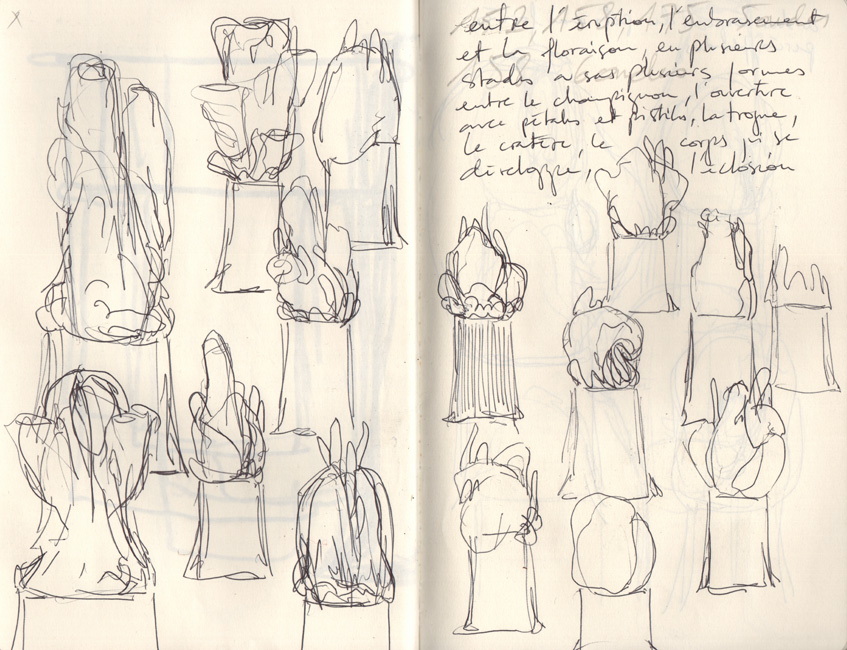 entre l'éruption, l'embrasement
et la floraison, en plusieurs
stades ou sas plusieurs formes
entre le champignon, l'ouverture
avec pétales et pistils, la trogne,
le cratère, le corps qui se
développe, l'éclosion